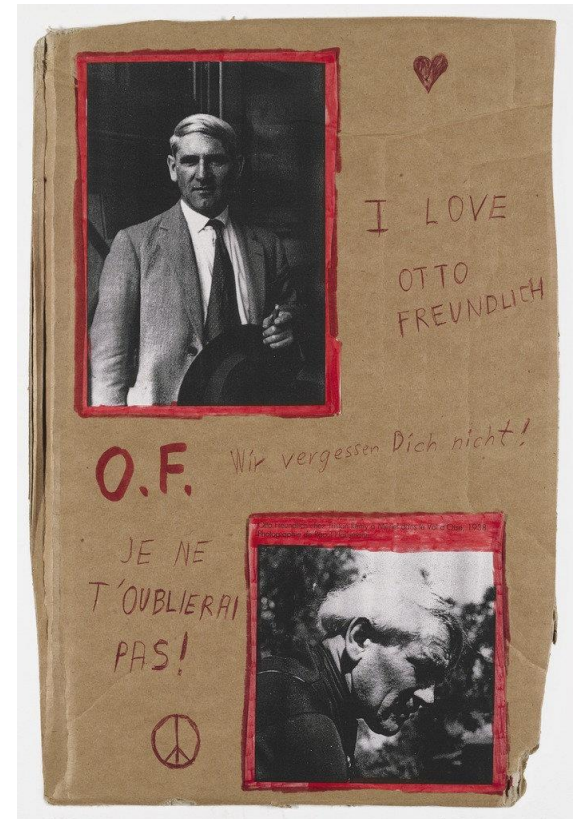 I LOVE
OTTO
FREUNDLICH
O.F.
Wir vergessen Dich nicht!
JE NE
T'OUBLIERAI
PAS!